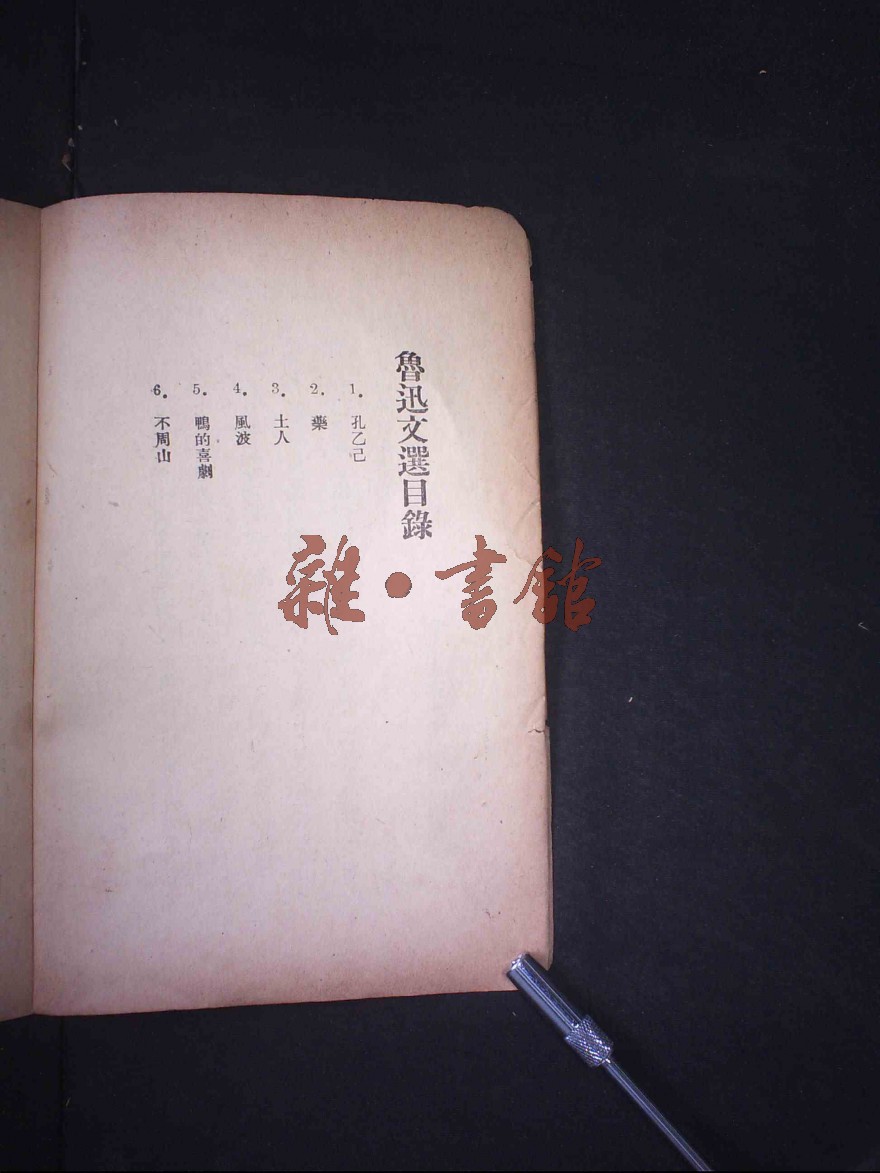 魯迅文選目錄
1. 孔乙己
2. 藥
3. 土人
4. 風波
5. 鴨的喜劇
6. 不周山
雜·書館